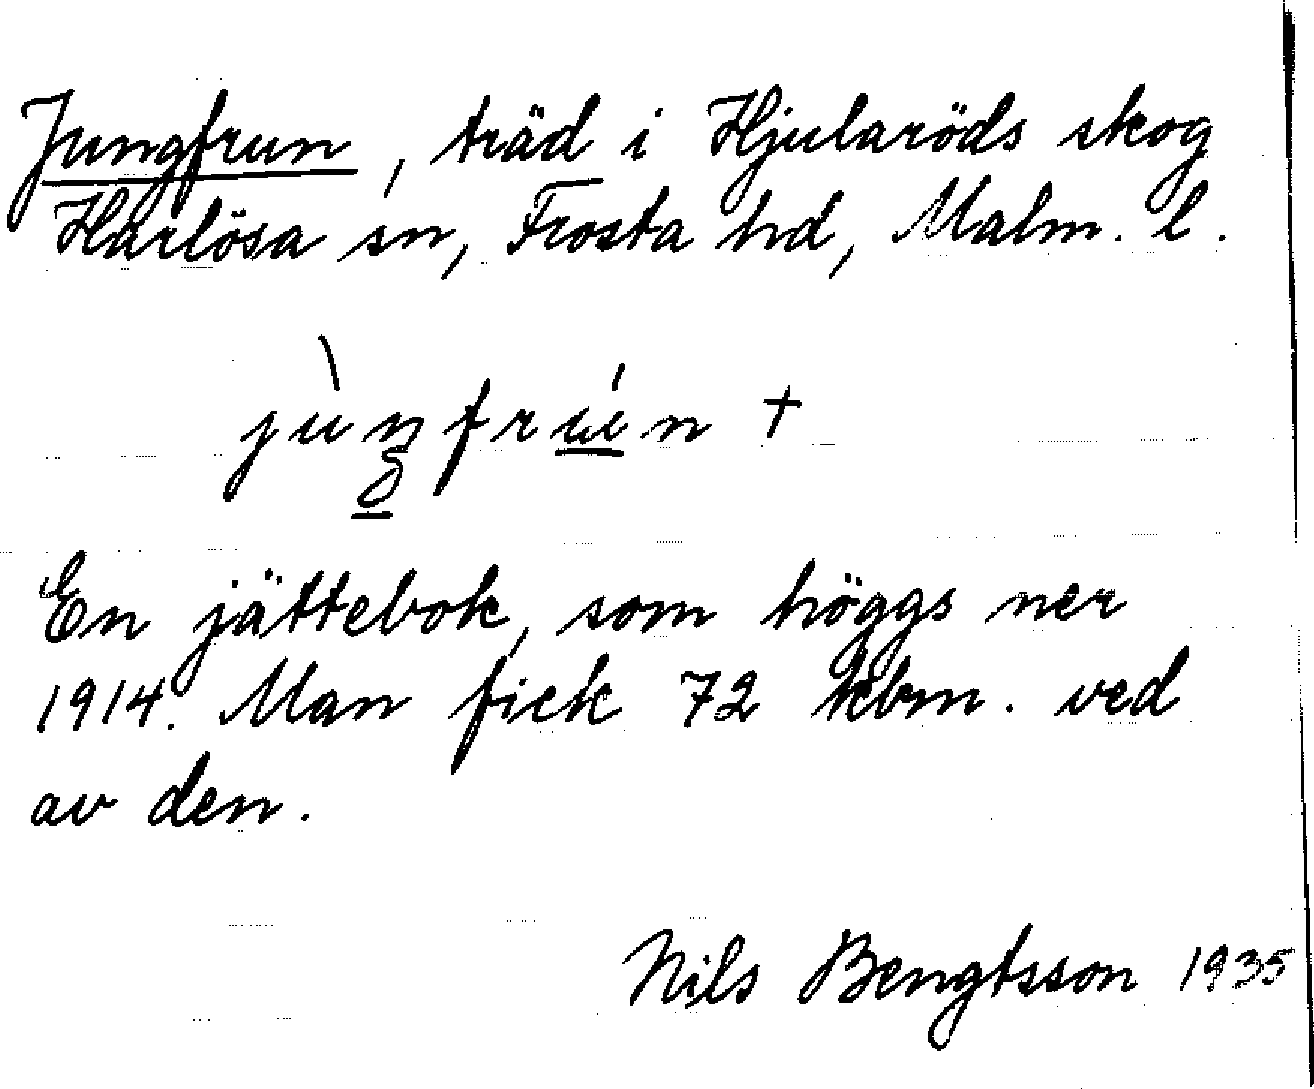 Jungfrun, träd i Hjularöds skog
Harlösa sn, Frosta hd, Malm. l.
En jättebok, som höggs ner
1914. Man fick 72 kbm. ved
av den.
Nils Bengtsson 1935